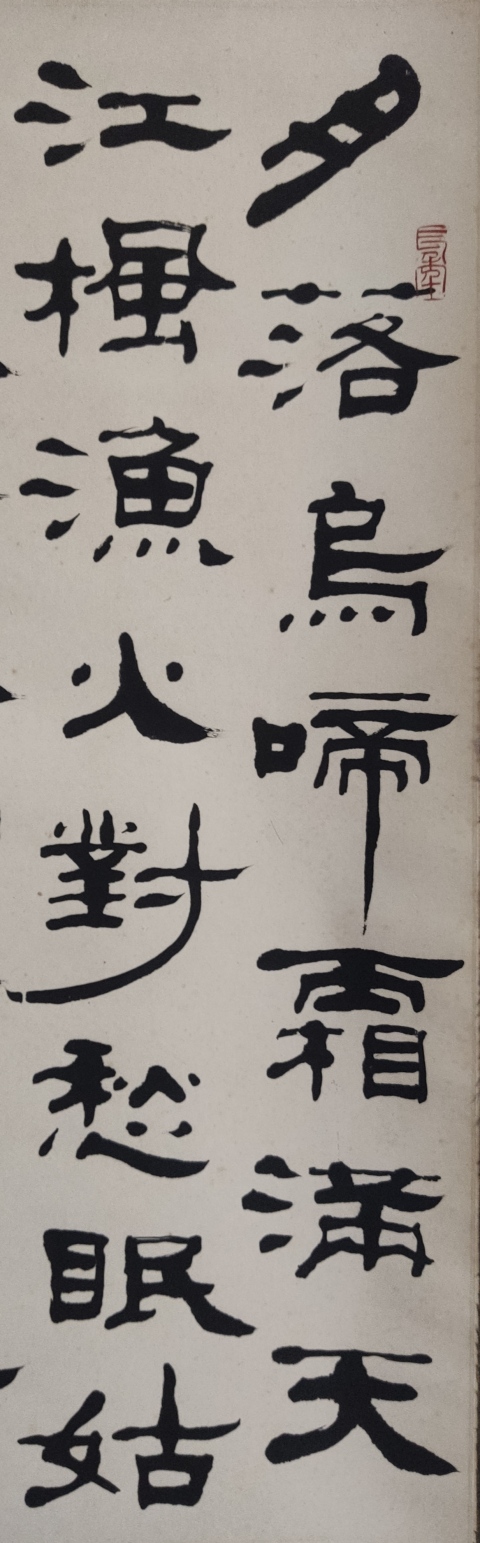 月落烏啼霜滿天
江楓漁火對愁眠姑